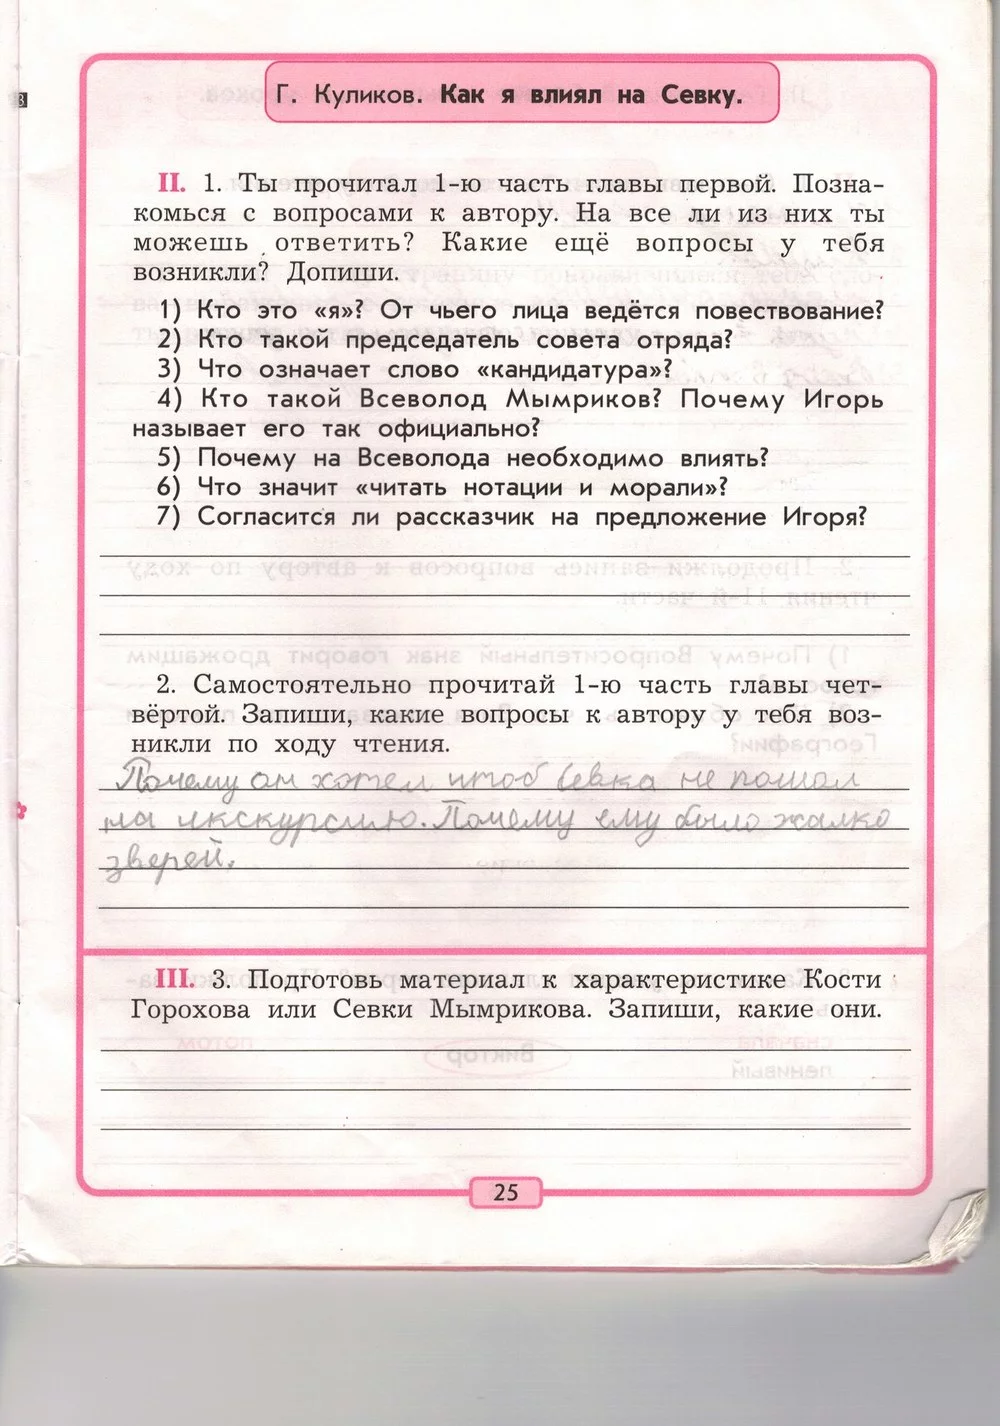 Г. Куликов. Как я влиял на Севку.
II. 1. Ты прочитал 1-ю часть главы первой. Позна-
комься с вопросами к автору. На все ли из них ты
можешь ответить? Какие ещё вопросы у тебя
возникли? Допиши.
1) Кто это «я»? От чьего лица ведётся повествование?
2) Кто такой председатель совета отряда?
3) Что означает слово «кандидатура»?
4) Кто такой Всеволод Мымриков? Почему Игорь
называет его так официально?
5) Почему на Всеволода необходимо влиять?
6) Что значит «читать нотации и морали»?
7) Согласится ли рассказчик на предложение Игоря?
2. Самостоятельно прочитай 1-ю часть главы чет-
вёртой. Запиши, какие вопросы к автору у тебя воз-
никли по ходу чтения.
Почему он хотел чтоб Севка не пошал
на икскурсию. Почему ему было жалко
зверей.
III. 3. Подготовь материал к характеристике Кости
Горохова или Севки Мымрикова. Запиши, какие они.
25